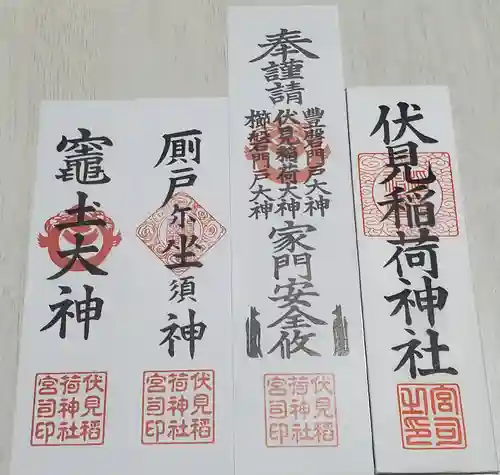 伏見稲荷神社
宮司之印
奉謹請
豊磐門戸大神
伏見稲荷大神
櫛磐門戸大神
家門安全攸
伏見稲
荷神社
宮司印
厠戸尓坐須神
伏見稲
荷神社
宮司印
竈土大神
伏見稲
荷神社
宮司印